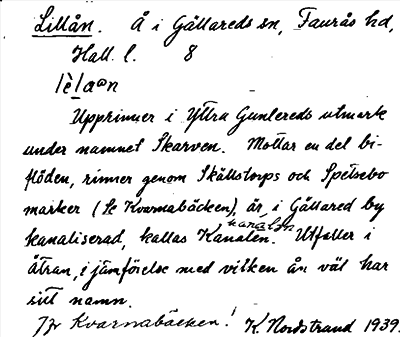 Lillån. Å i Gällareds sn, Faurås hd,
Hall. l. 8
Upprinner i Yttra Gunlereds utmark
under namnet Skarven. Mottar en del bi-
flöden, rinner genom Skällstorps och Spetsebo
marker (Se Kvarnabäcken), är i Gällared by
kanaliserad, kallas Kanalen. Utfaller i
kanalən
Ätran, i jämförelse med vilken ån väl har
sitt namn.
Jfr Kvarnabäcken! K. Nordstrand 1939.